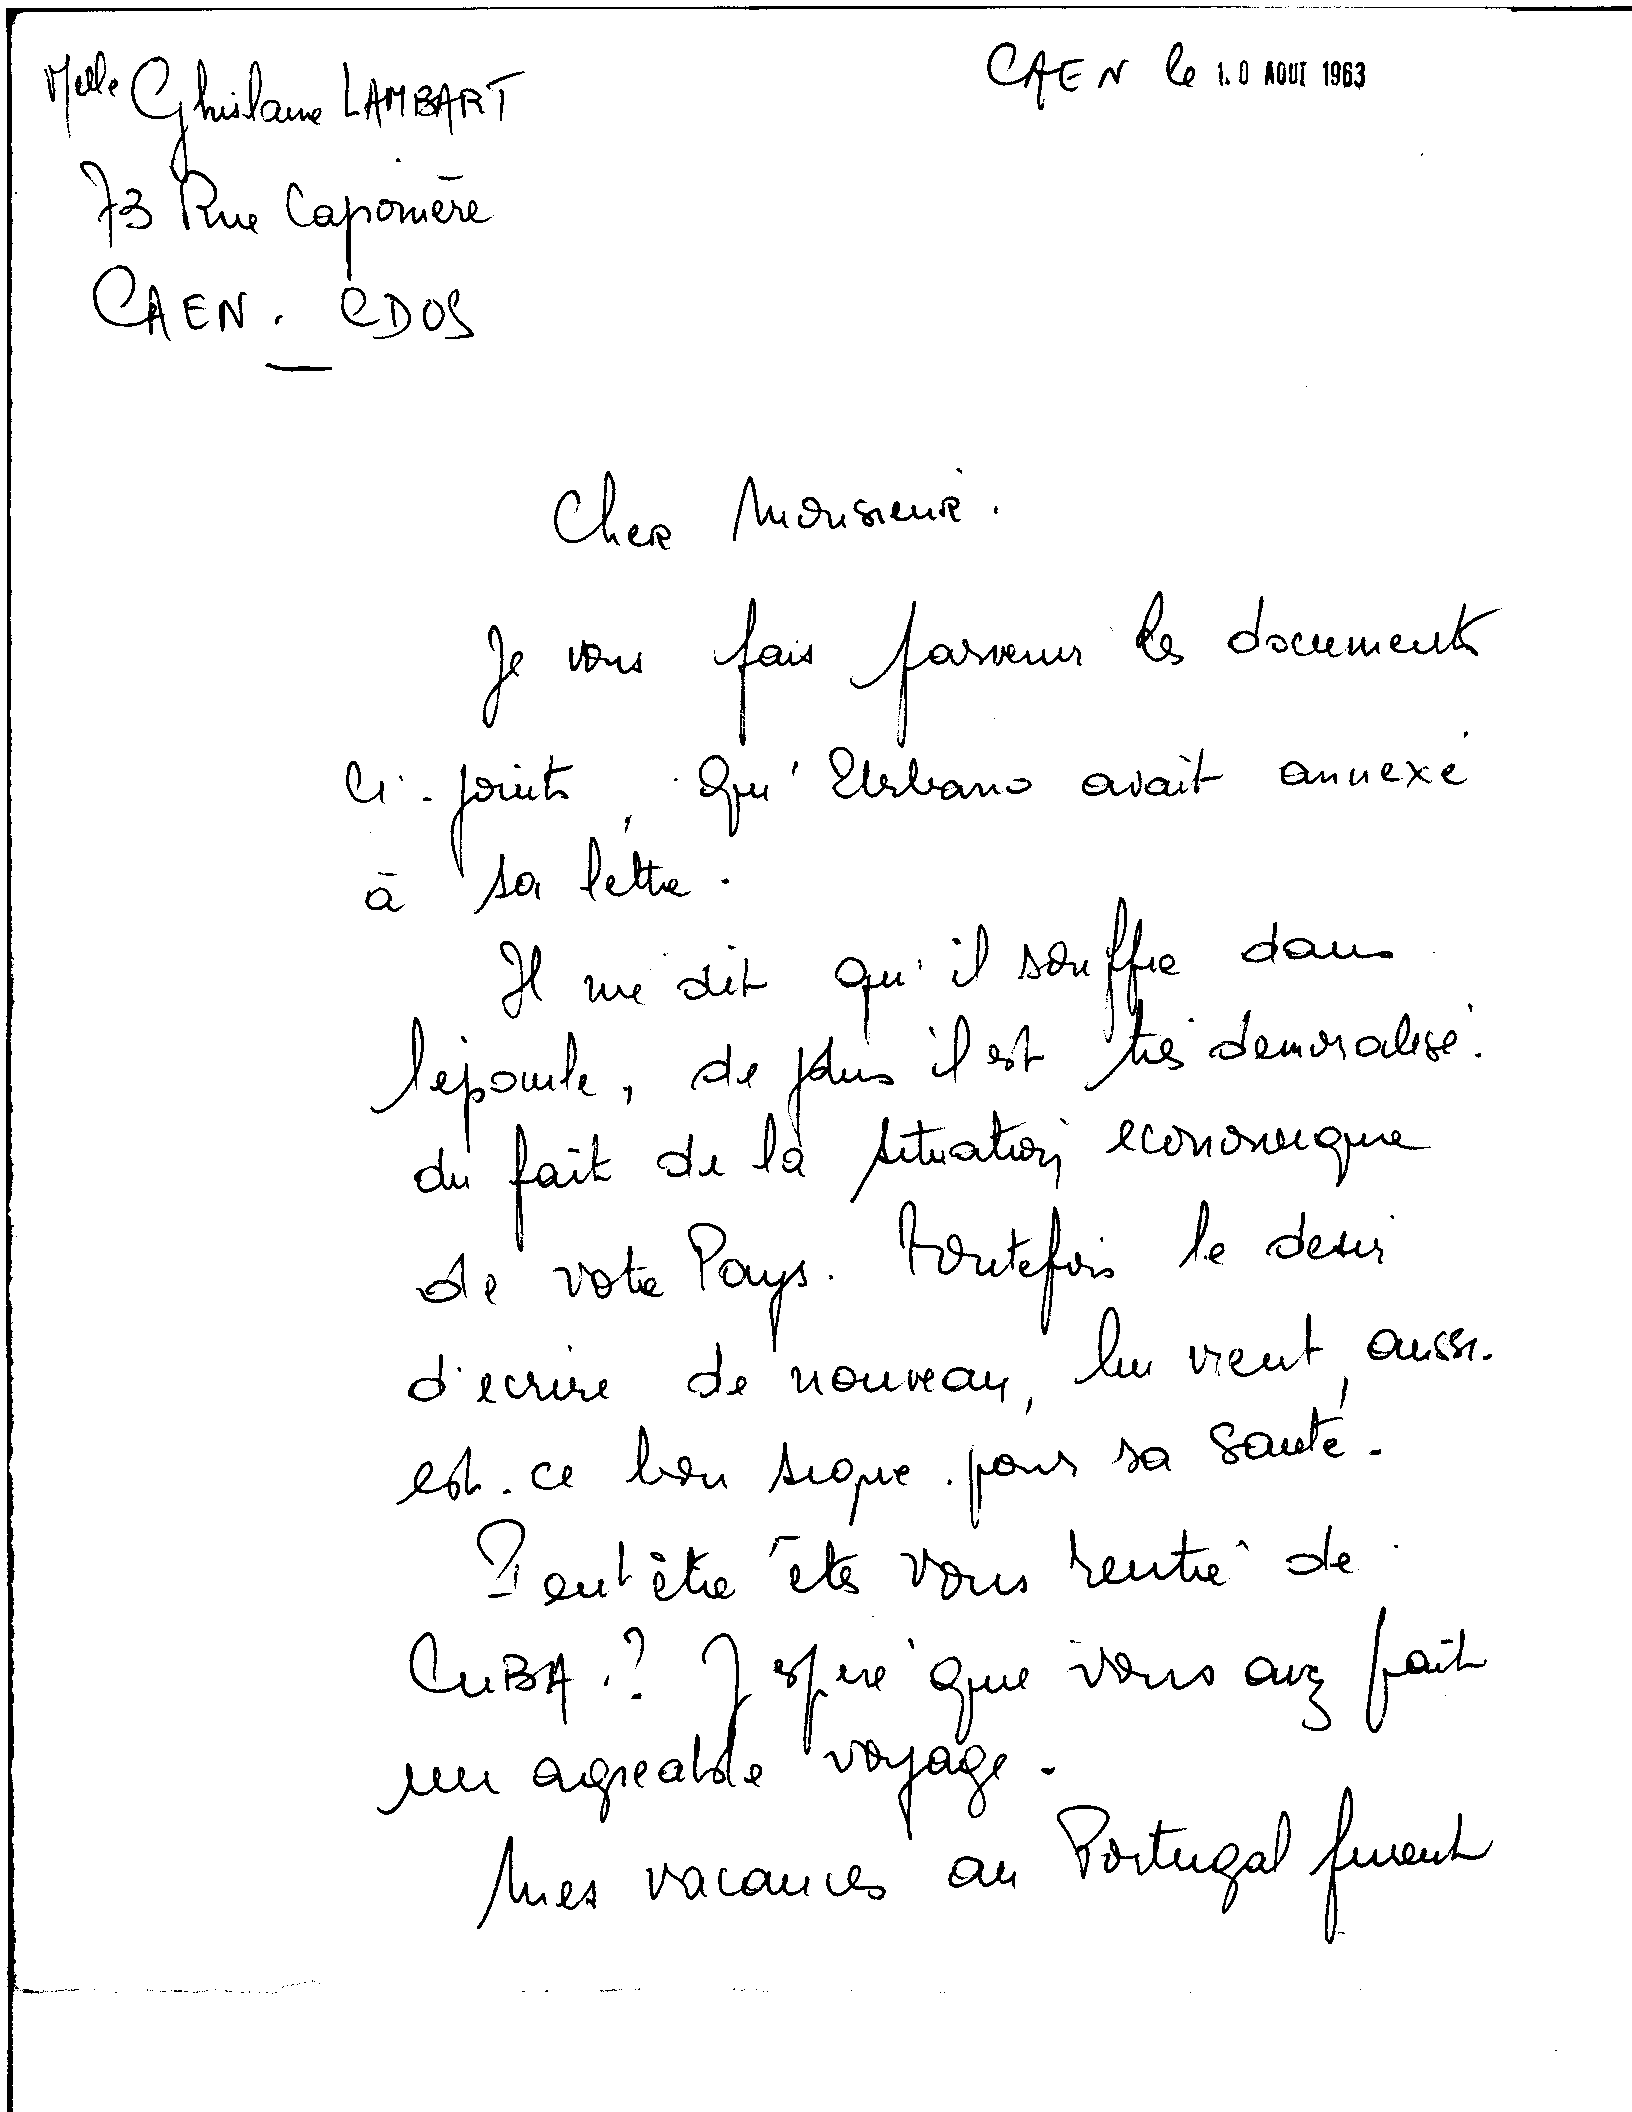 Melle Ghislaine LAMBART
CAEN le 1.0 AOUT 1963
73 Rue Caponière
CAEN. CDOS
Cher Monsieur.
Je vous fais parvenir les documents
ci-joints, qu'Urbano avait annexé
à sa lettre.
Il me dit qu'il souffre dans
l'épaule, de plus il est très demoralisé.
du fait de la situation economique
de votre Pays. Toutefois le desir
d'ecrire de nouveau, lui vient, aussi.
est-ce bon signe pour sa santé.
Peut être êtes vous rentré de
CUBA.? J'espere que vous avez fait
un agreable voyage.
Mes vacances au Portugal furent